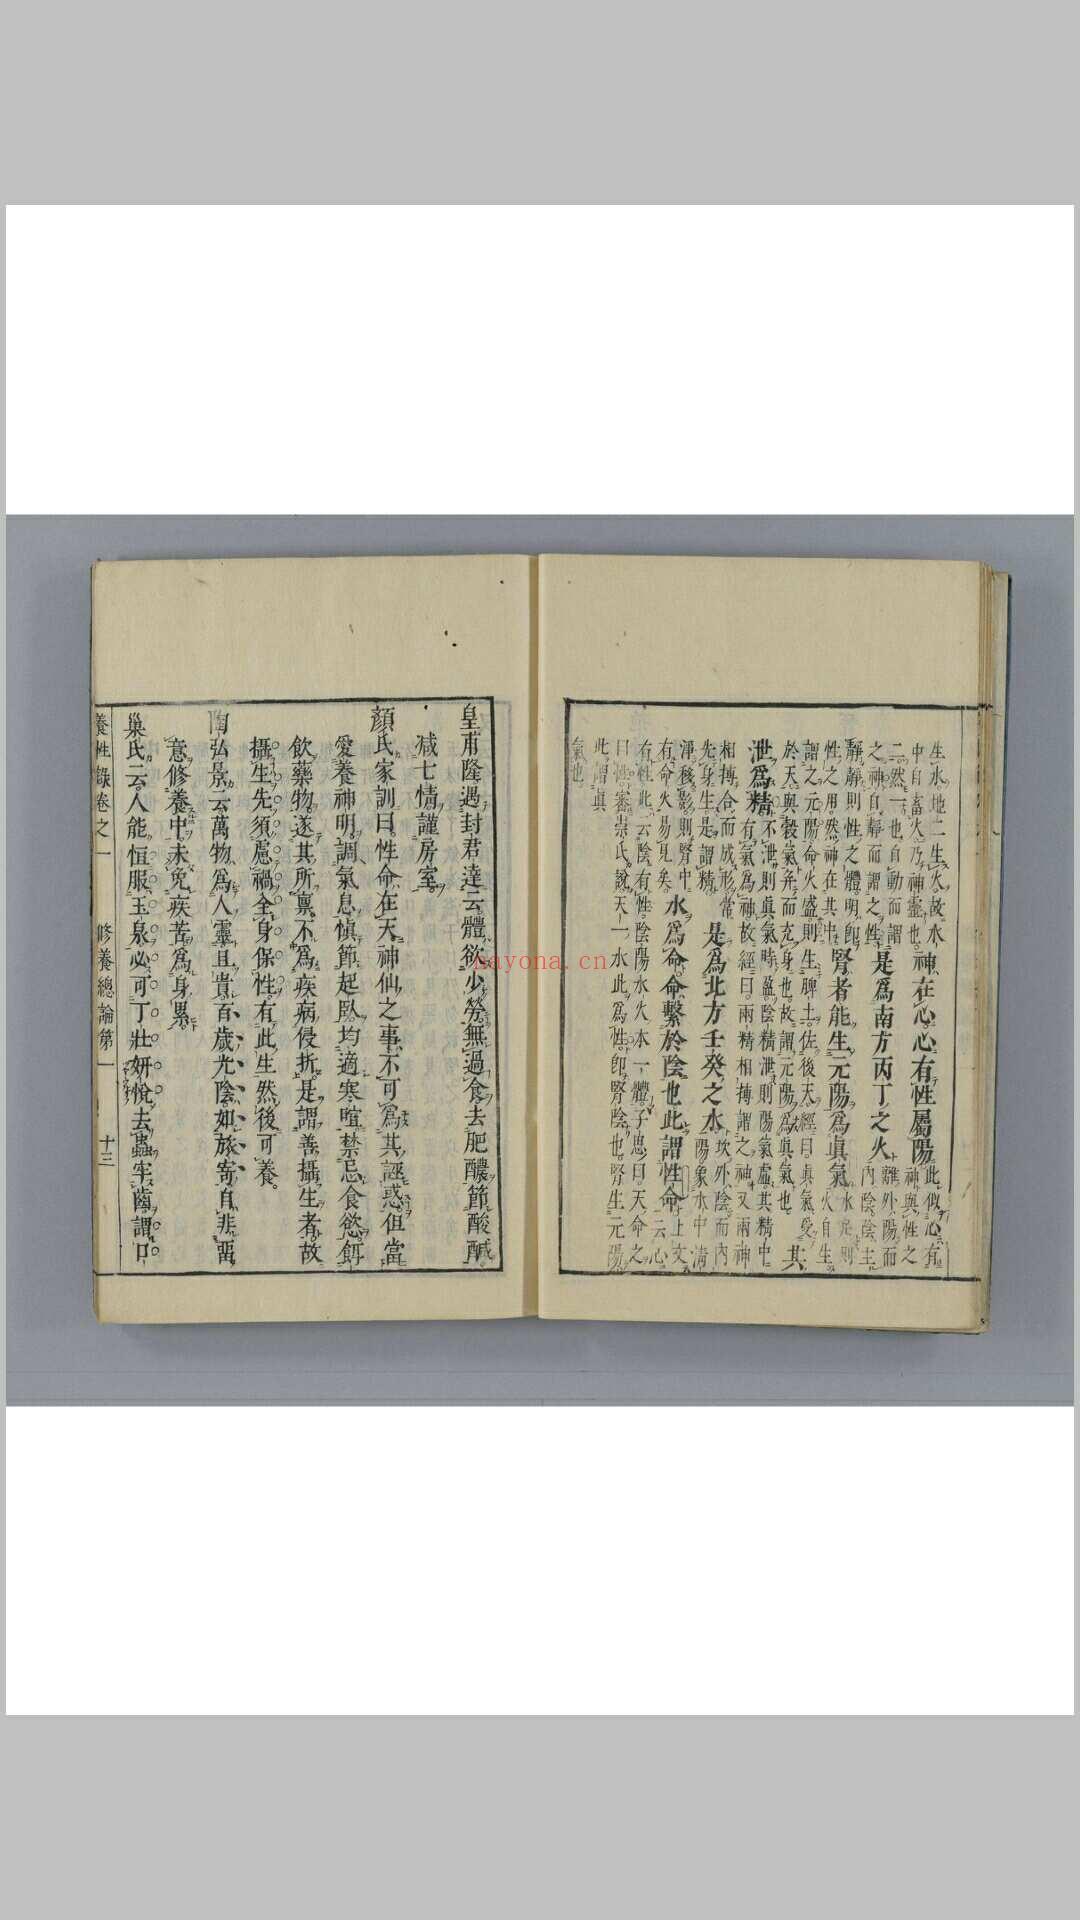 生水地二生火故水
中自畜火乃神靈也
神在心心有性屬陽
此似心有
神與性之
二然一也自動而謂
之神自靜而謂之性
是爲南方丙丁之火
離外陽而
內陰陰主
靜靜則性之體明卽
性之用然神在其中
腎者能生元陽爲眞氣
水定則
火自生
謂之元陽命火盛則生脾土佐後天經曰眞氣受
於天與穀氣幷而充身也故謂元陽爲眞氣也
其
泄爲精
不泄則眞氣時盈陰精泄則陽氣虛其精中
有氣爲神故經曰兩精相搏謂之神又兩神
相搏合而成形常
先身生是謂精
是爲北方壬癸之水
坎外陰而內
陽象水中淸
淨移影則腎中
有命火易見矣
水爲命命繫於陰也此謂性命
上文
云心
有性此云陰有性陰陽水火本一體子思曰天命之
曰性審崇氏說天一水此爲性卽腎陰也腎生元陽
此謂眞
氣也
皇甫隆遇封君達云體欲少勞無過食去肥醲節酸鹹
減七情謹房室
顏氏家訓曰性命在天神仙之事不可爲其誣惑但當
愛養神明調氣息愼節起臥均適寒暄禁忌食慾餌
飲藥物遂其所稟不爲疾病侵折是謂善攝生者故
攝生先須慮禍全身保性有此生然後可養
陶弘景云萬物爲人靈且貴百歲光陰如旅寄自非畱
意修養中未免疾苦爲身累
巢氏云人能恒服玉泉必可丁壯妍悅去蟲牢齒謂口
養性錄卷之一 修養總論第一 十三
nayona.cn